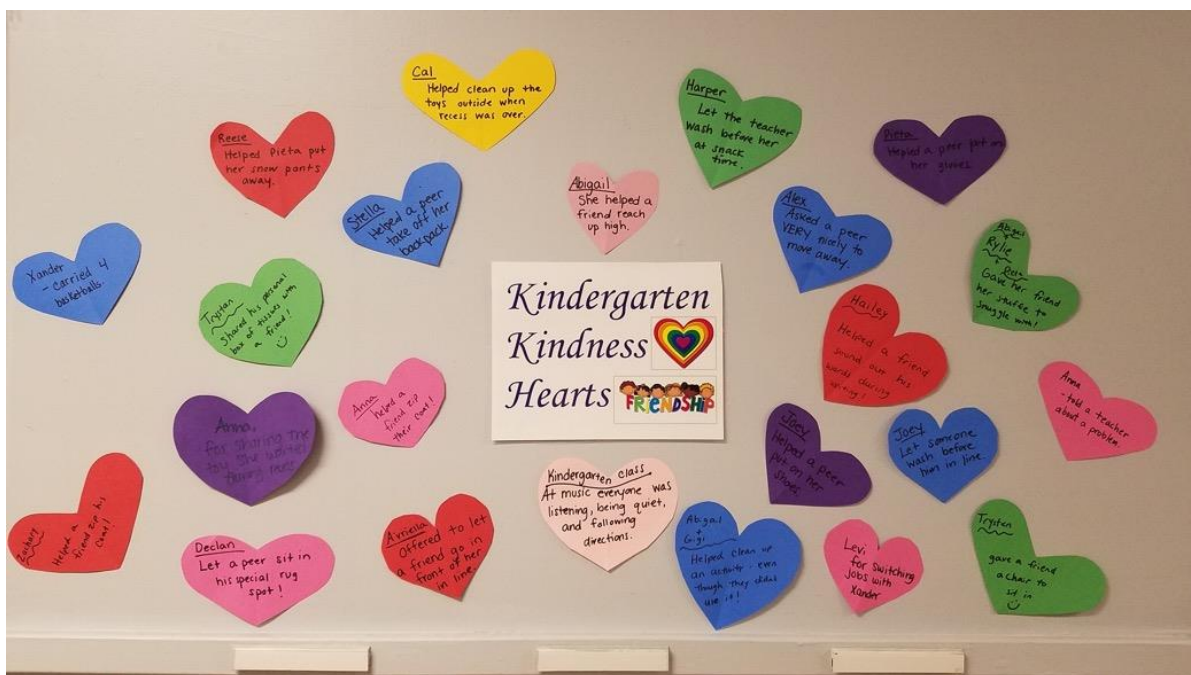 Cal
Helped clean up the
toys outside when
recess was over.
Harper
Let the teacher
wash before her
at snack
time.
Reese
Helped Pieta put
her snow pants
away.
Pieta
Helped a peer put on
her gloves
Stella
Helped a peer
take off her
backpack
Abigail
She helped a
friend reach
up high.
Alex
Asked a peer
VERY nicely to
move away.
Abigail
+
Rylie
Gave her friend
her stuffie to
snuggle with!
Xander
- carried 4
basketballs.
Trystan
Shared his personal
box of tissues with
a friend!
Kindergarten
Kindness
Hearts
FRIENDSHIP
Hailey
Helped a friend
sound out his
words during
writing!
Anna
helped a
friend zip
their coat!
Anna
- told a teacher
about a problem.
Anna,
for sharing the
toy she
Joey
Helped a peer
put on her
shoes
Joey
Let someone
wash before
him in line.
Zachary
Helped a
friend zip his
coat!
Declan
Let a peer sit in
his special rug
spot!
Avriella
Offered to let
a friend go in
front of her
in line
Kindergarten class
At music everyone was
listening, being quiet,
and following
directions.
Abigail
+
Gigi
Helped clean up
an activity even
though they didnt
use it!
Levi
for switching
jobs with
Xander
Trystan
gave a friend
a chair to
sit in